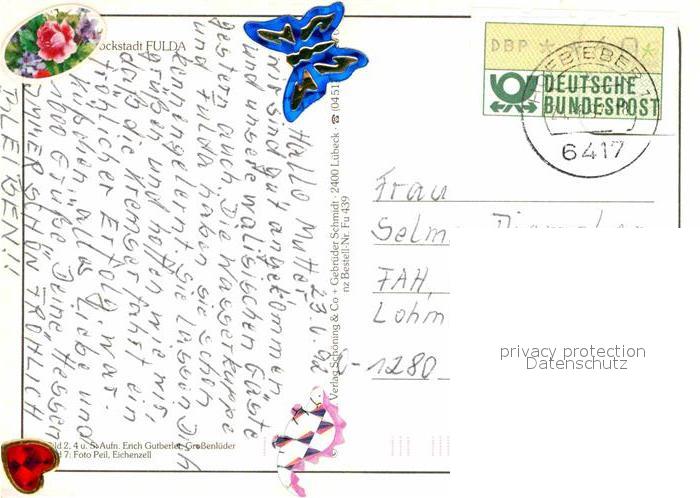 ockstadt FULDA
23.6.92
Hallo Mutter,
wir sind gut angekommen
und unsere walisischen Gäste
gestern auch. Die Wasserkuppe
und Fulda haben sie schon
kennengelernt. Sie lassen Dich
grüßen und hoffen wie wir,
daß die Kremserfahrt ein
fröhlicher Erfolg war.
alles Liebe und
1000 Grüße Deine "Hessen"
IMMER SCHÖN FRÖHLICH
BLEIBEN!!!
ild 2, 4 u. 5 Aufn. Erich Gutberlet, Großenlüder
d 7: Foto Peil, Eichenzell
Verlag Schöning & Co + Gebrüder Schmidt · 2400 Lübeck · ☎ (0451
nz Bestell-Nr. Fu 439
DBP
DEUTSCHE
BUNDESPOST
6417
Frau
Selm
FAH,
Lohm
O-1280
privacy protection
Datenschutz